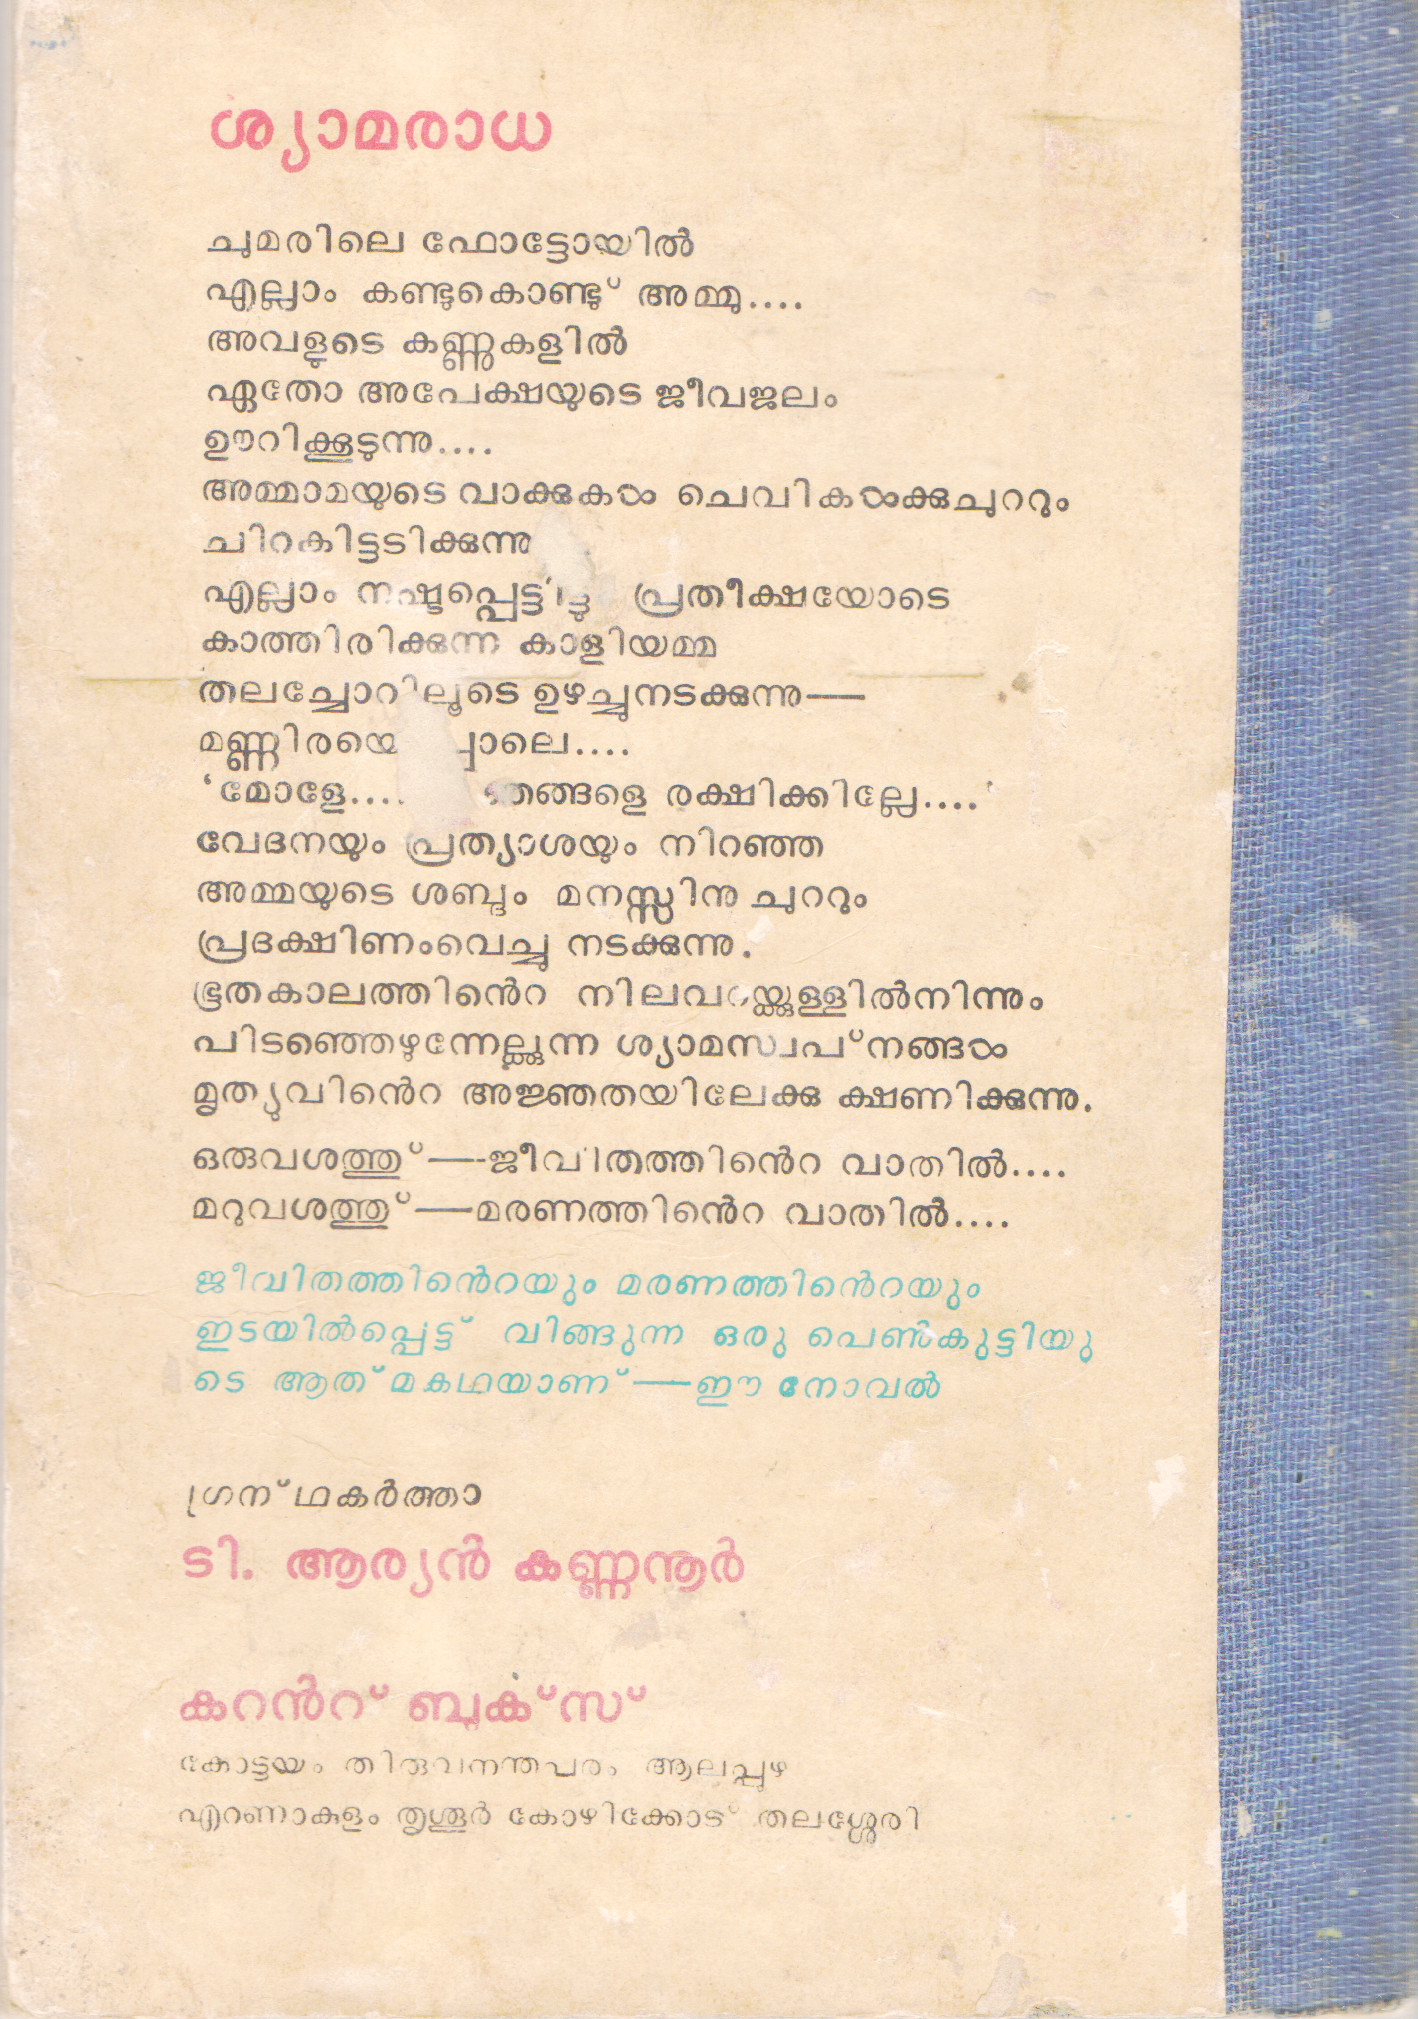 ശ്യാമരാധ
ചുമരിലെ ഫോട്ടോയിൽ
എല്ലാം കണ്ടുകൊണ്ടു് അമ്മു....
അവളുടെ കണ്ണുകളിൽ
ഏതോ അപേക്ഷയുടെ ജീവജലം
ഊറിക്കൂടുന്നു....
അമ്മാമയുടെ വാക്കുകൾ ചെവികൾക്കുചുററും
ചിറകിട്ടടിക്കുന്നു
എല്ലാം നഷ്ടപ്പെട്ടിട്ടു പ്രതീക്ഷയോടെ
കാത്തിരിക്കുന്ന കാളിയമ്മ
തലച്ചോറിലൂടെ ഉഴച്ചുനടക്കുന്നു—
മണ്ണിരയെപ്പോലെ....
‘മോളേ.... ഞങ്ങളെ രക്ഷിക്കില്ലേ....’
വേദനയും പ്രത്യാശയും നിറഞ്ഞ
അമ്മയുടെ ശബ്ദം മനസ്സിനു ചുററും
പ്രദക്ഷിണംവെച്ചു നടക്കുന്നു.
ഭൂതകാലത്തിൻെറ നിലവറയ്ക്കുള്ളിൽനിന്നും
പിടഞ്ഞെഴുന്നേല്ക്കുന്ന ശ്യാമസ്വപ്‌നങ്ങൾ
മൃത്യുവിൻെറ അജ്ഞതയിലേക്കു ക്ഷണിക്കുന്നു.
ഒരുവശത്തു്—ജീവിതത്തിൻെറ വാതിൽ....
മറുവശത്തു്—മരണത്തിൻെറ വാതിൽ....
ജീവിതത്തിൻെറയും മരണത്തിൻെറയും
ഇടയിൽപ്പെട്ട് വിങ്ങുന്ന ഒരു പെൺകുട്ടിയു
ടെ ആത്‌മകഥയാണ്—ഈ നോവൽ
ഗ്രന്ഥകർത്താ
ടി. ആര്യൻ കണ്ണനൂർ
കറൻറ് ബുക്‌സ്
കോട്ടയം തിരുവനന്തപുരം ആലപ്പുഴ
എറണാകുളം തൃശൂർ കോഴിക്കോട് തലശ്ശേരി